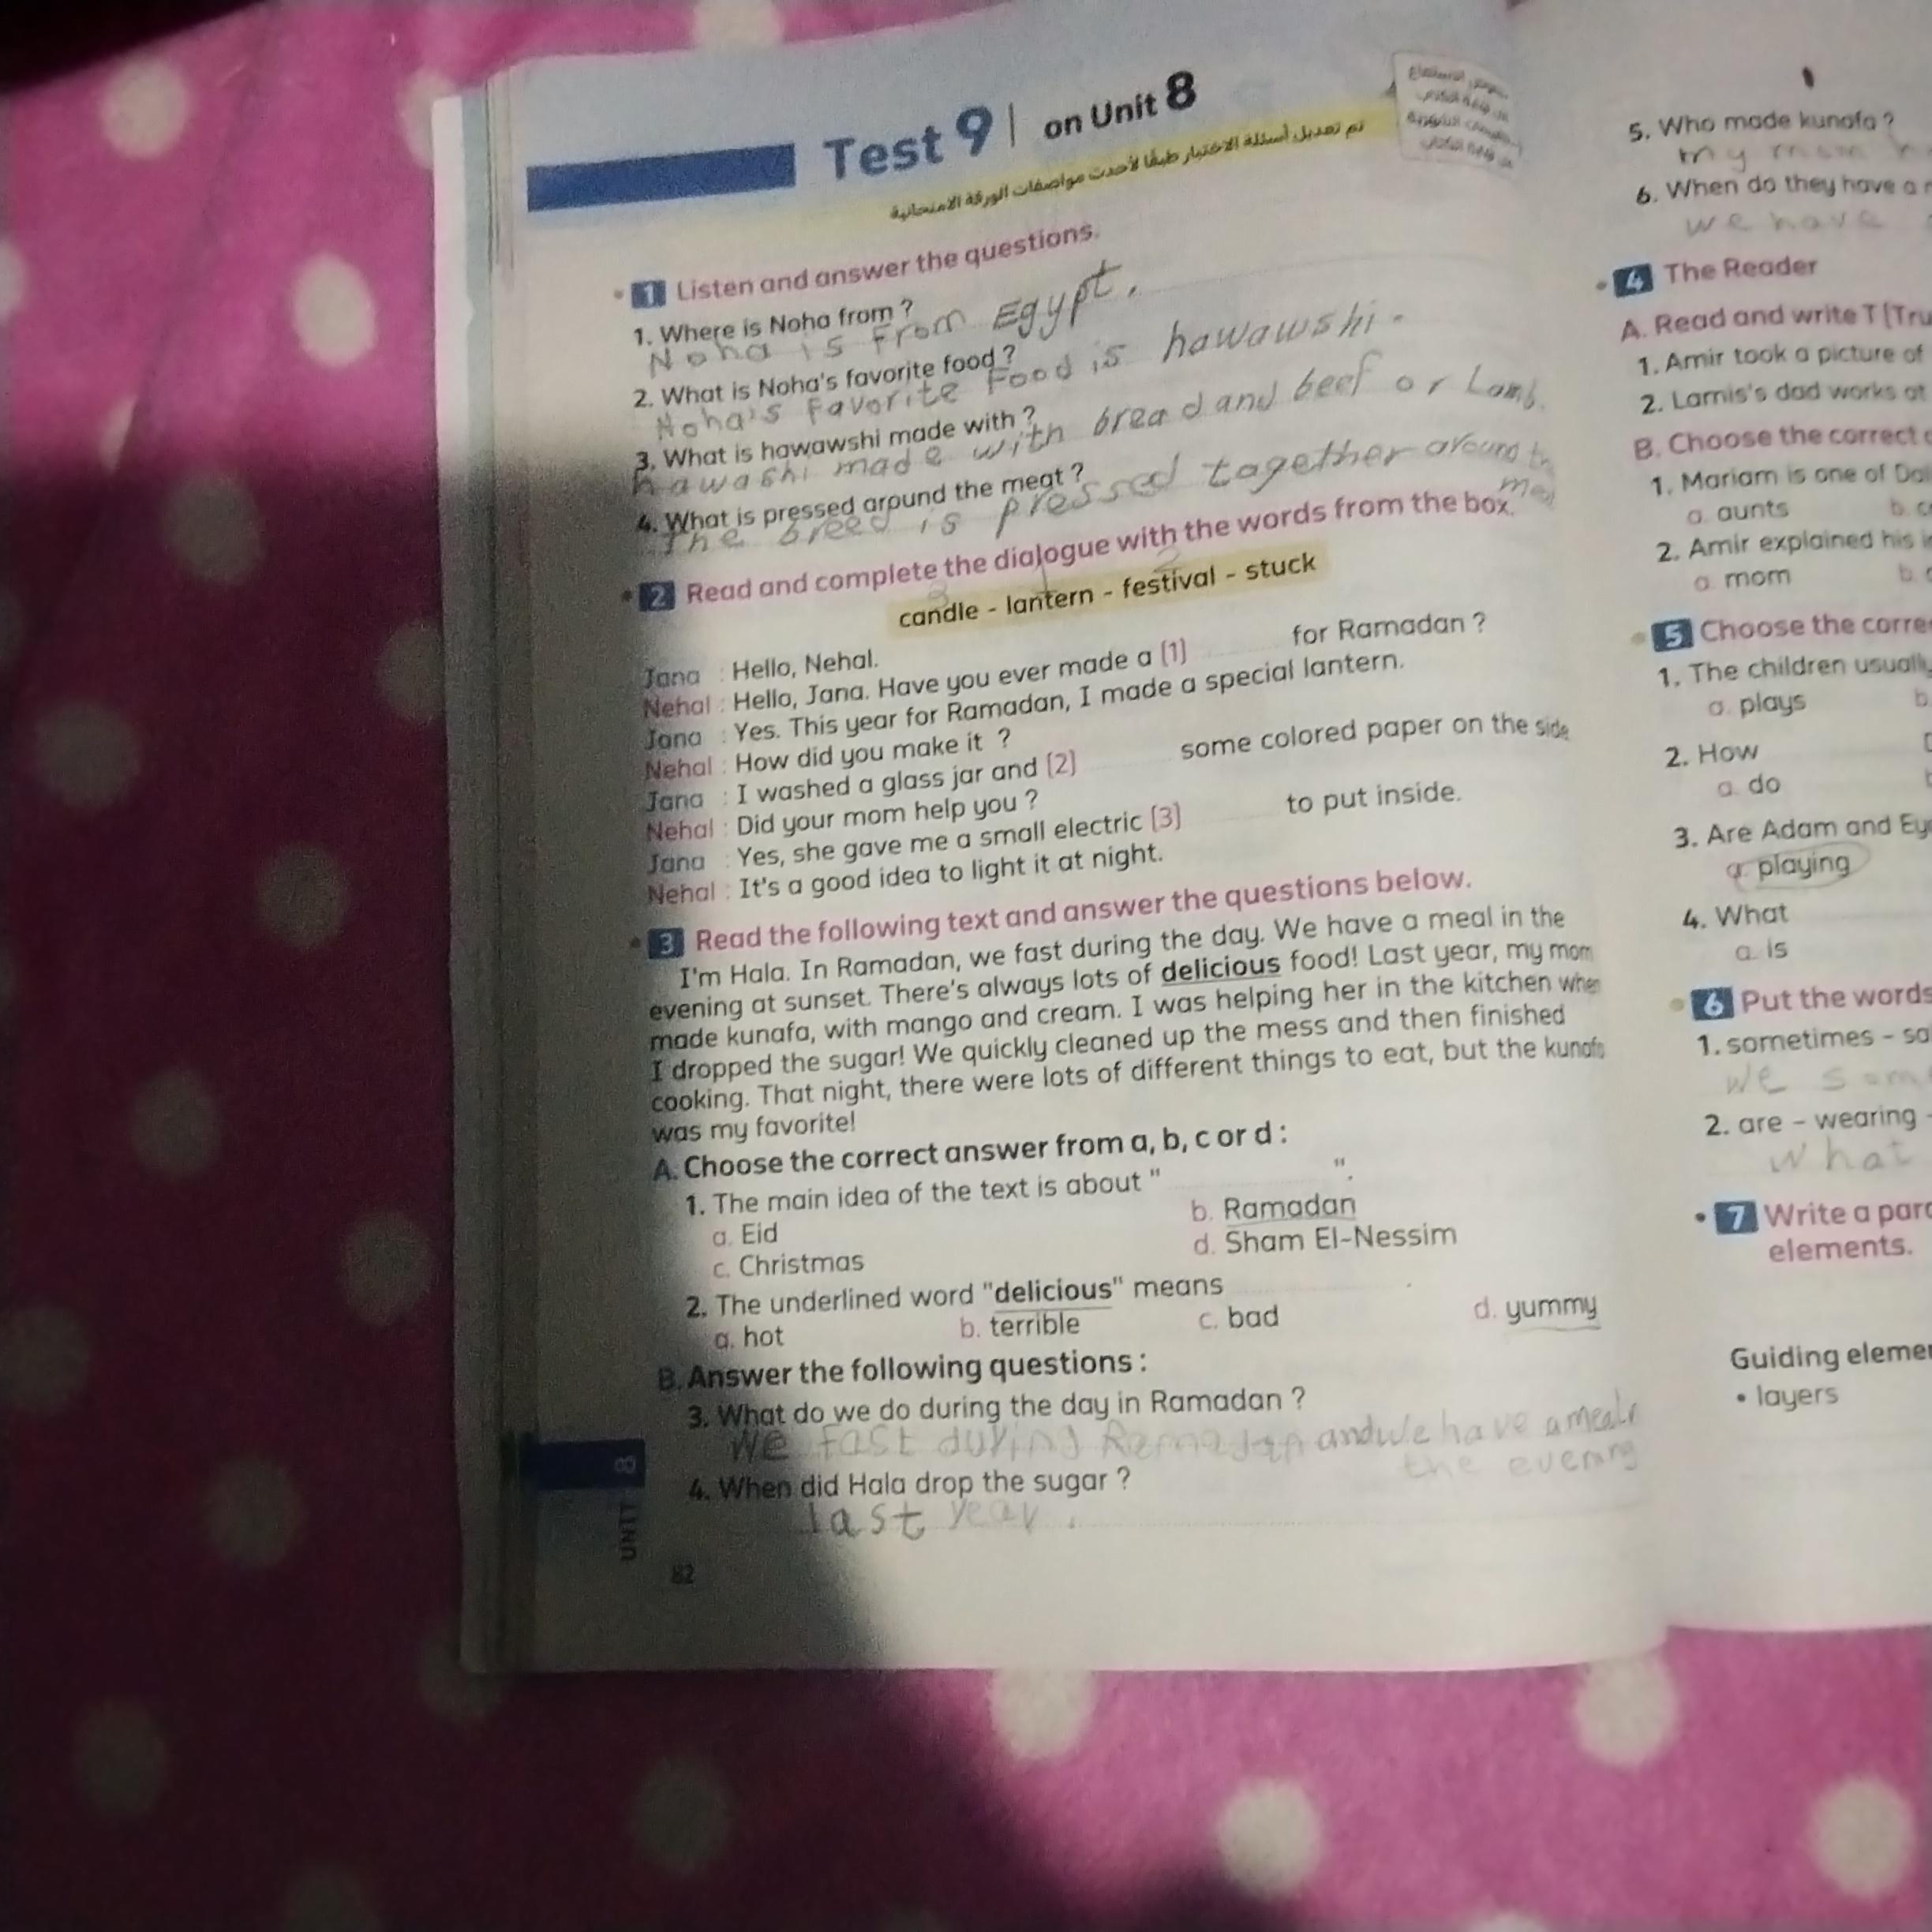 Test 9 | on Unit 8
تم تعديل أسئلة الاختبار طبقًا لأحدث مواصفات الورقة الامتحانية
1 Listen and answer the questions.
1. Where is Noha from ?
Noha is from Egypt.
2. What is Noha's favorite food ?
Noha's Favorite Food is hawawshi.
3. What is hawawshi made with ?
hawashi made with bread and beef or Lamb.
4. What is pressed around the meat ?
The breed is pressed together around
2 Read and complete the dialogue with the words from the box.
candle - lantern - festival - stuck
Jana : Hello, Nehal.
Nehal : Hello, Jana. Have you ever made a (1) for Ramadan ?
Jana : Yes. This year for Ramadan, I made a special lantern.
Nehal : How did you make it ?
Jana : I washed a glass jar and (2) some colored paper on the side
Nehal : Did your mom help you ?
Jana : Yes, she gave me a small electric (3) to put inside.
Nehal : It's a good idea to light it at night.
3 Read the following text and answer the questions below.
I'm Hala. In Ramadan, we fast during the day. We have a meal in the
evening at sunset. There's always lots of delicious food! Last year, my mom
made kunafa, with mango and cream. I was helping her in the kitchen when
I dropped the sugar! We quickly cleaned up the mess and then finished
cooking. That night, there were lots of different things to eat, but the kunafa
was my favorite!
A. Choose the correct answer from a, b, c or d :
1. The main idea of the text is about " ".
a. Eid b. Ramadan
c. Christmas d. Sham El-Nessim
2. The underlined word "delicious" means .
a. hot b. terrible c. bad d. yummy
B. Answer the following questions :
3. What do we do during the day in Ramadan ?
We fast during Ramadan and we have a meal
the evening
4. When did Hala drop the sugar ?
last year.
UNIT 8
82
5. Who made kunafa ?
my mom
6. When do they have a
we have
4 The Reader
A. Read and write T (Tru
1. Amir took a picture of
2. Lamis's dad works at
B. Choose the correct
1. Mariam is one of
a. aunts b.
2. Amir explained his
a. mom b.
5 Choose the corre
1. The children usually
a. plays b.
2. How
a. do
3. Are Adam and
a. playing
4. What
a. is
6 Put the words
1. sometimes -
we
2. are - wearing -
what
7 Write a para
elements.
Guiding eleme
• layers